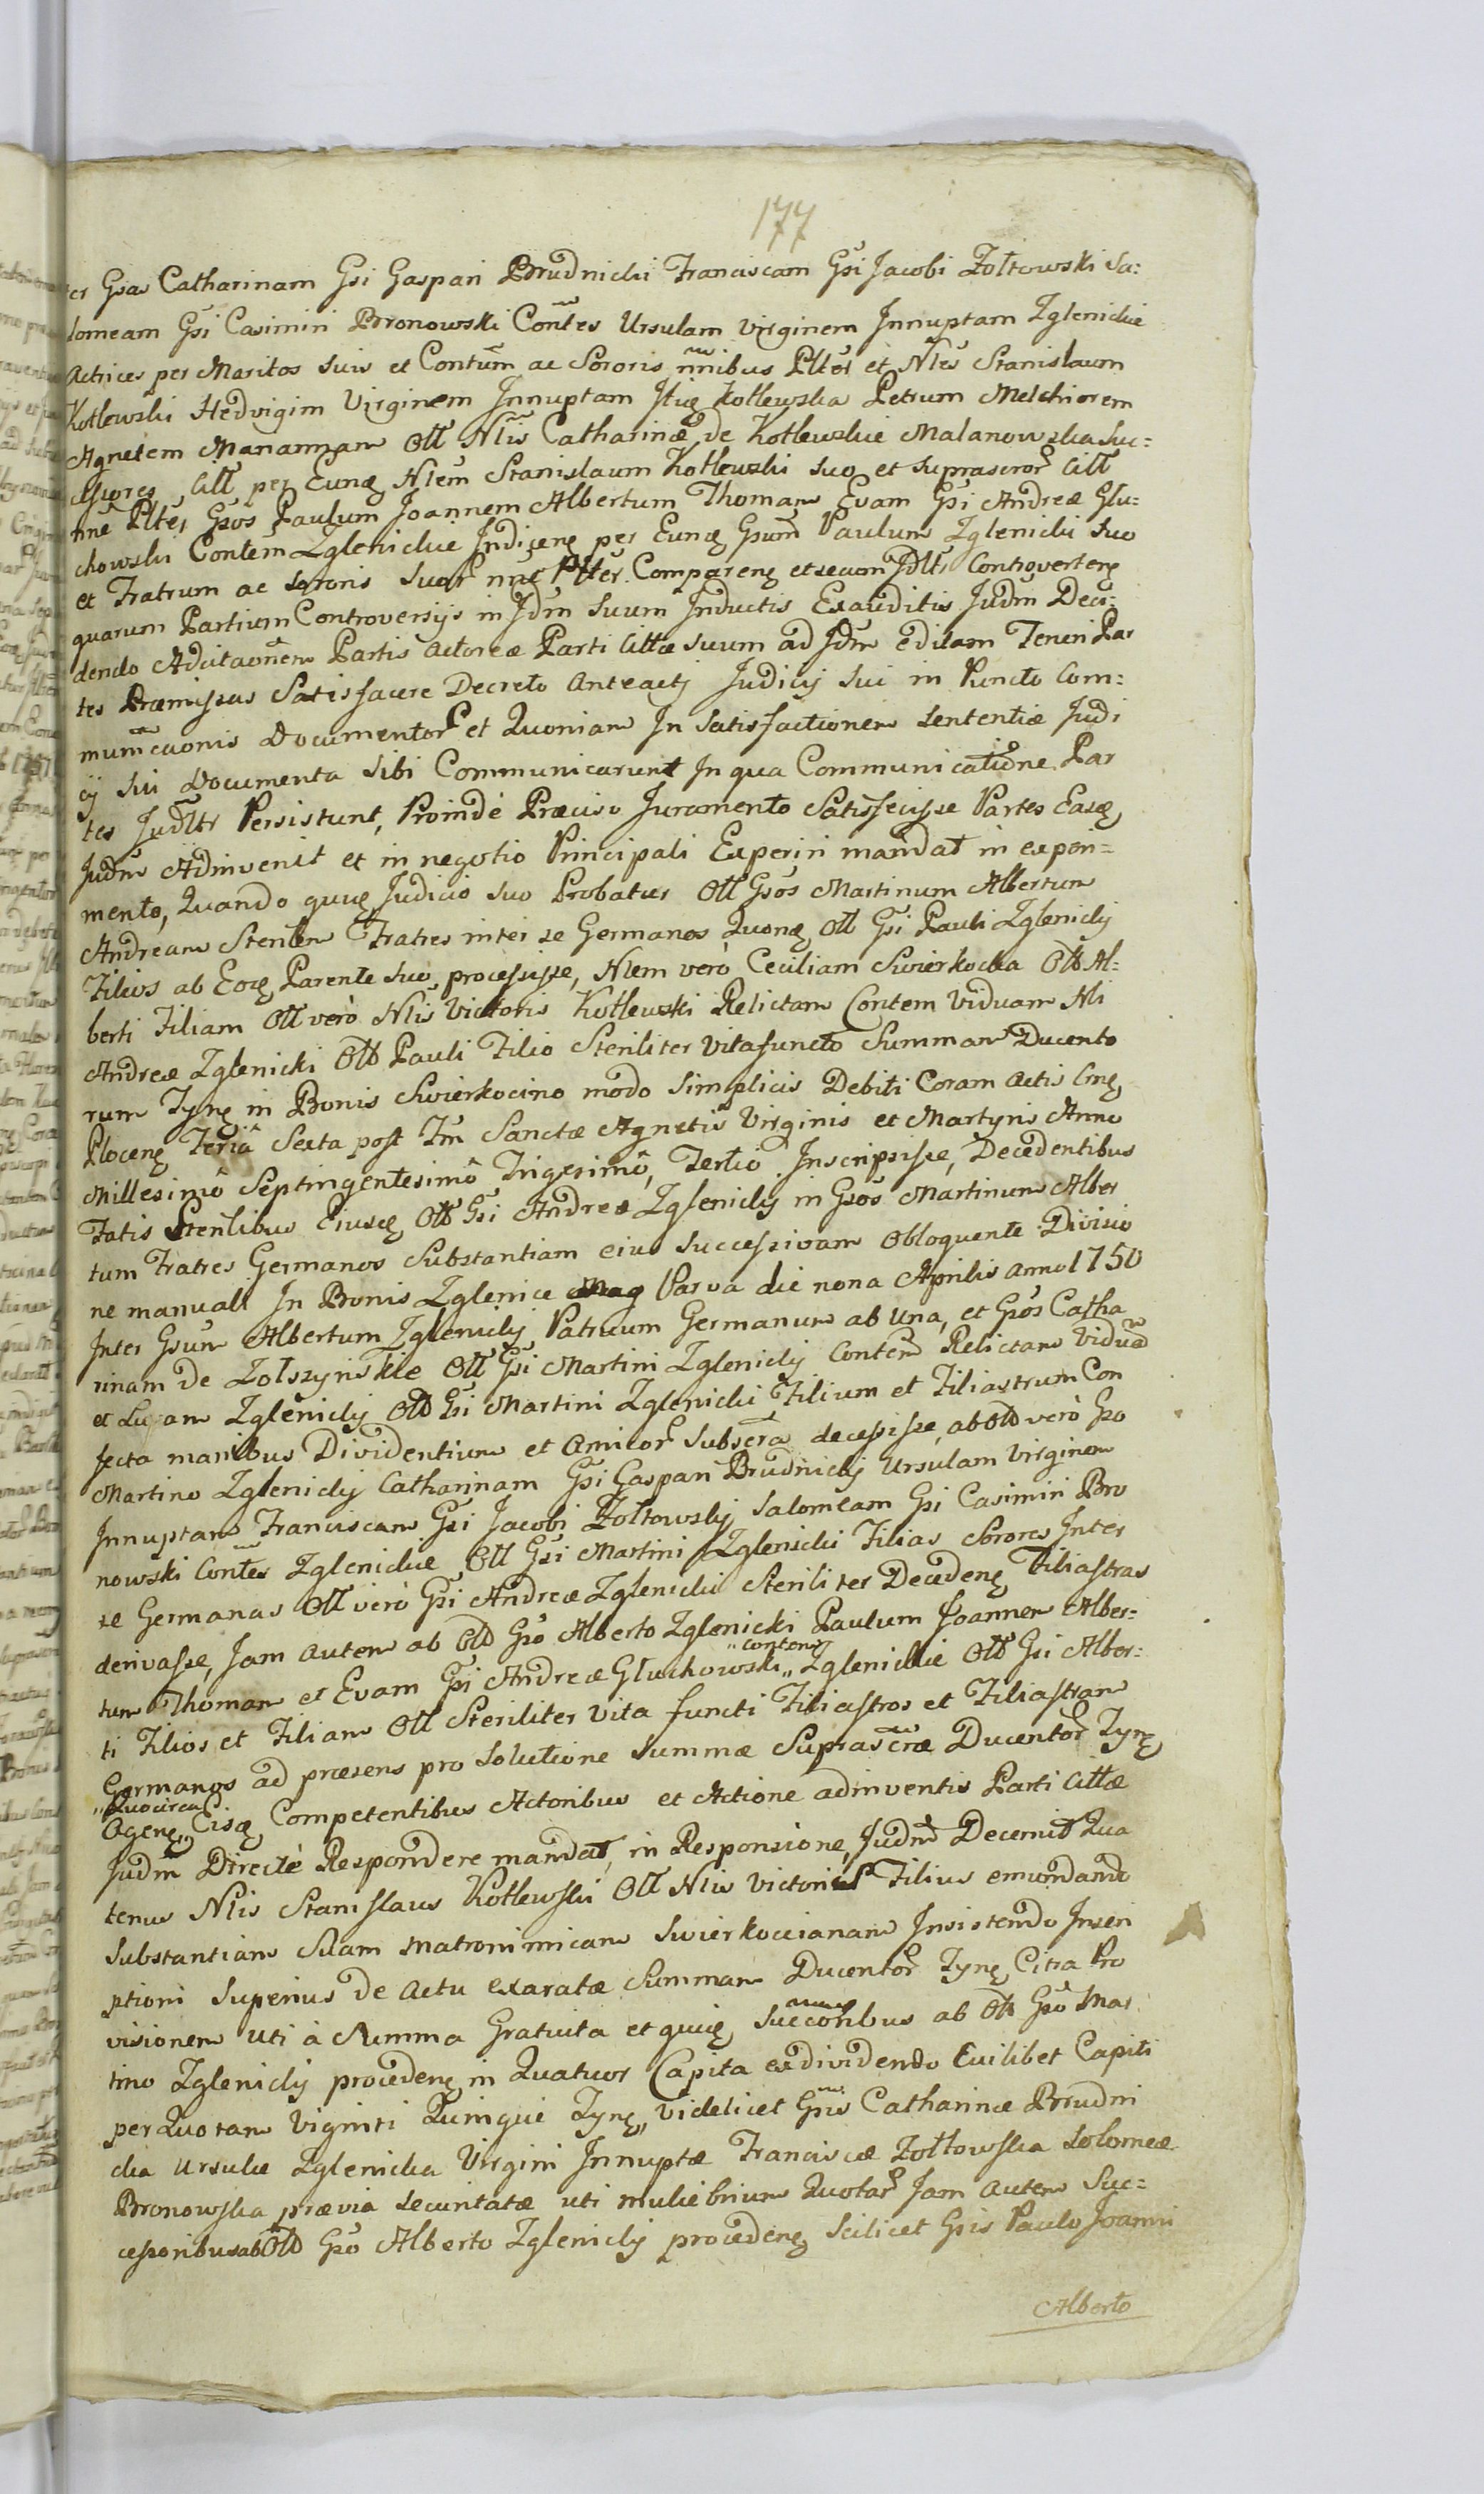 177
Gsas Catharinam Gsi Gaspari Brudnicki Franciscam Gsi Jacobi Zołtowski Sa:
lomeam Gsi Casimiri Bronowski Contes Ursulam Virginem Innuptam Zglenickie
Actrices per Maritos suis et Contum ac Sororis nnibus Plter et Nles Stanislaum
Kotlewski Hedvigim Virginem Innuptam Kotlewska Petrum Melchiorem
Agnetem Mariannam Oll Nlis Catharinæ de Kotlewskie Malanowska Suc:
cessores Citt per Eunq Nlem Stanislaum Kotlewski suo et suprascror Citt
nne Plter Gsos Paulum Joannem Albertum Thomam Evam Gsi Andreæ Glu:
chowski Contem Zglenickie Indigenq per Eunq Gsum Paulum Zglenicki suo
et Fratrum ac Sororis suar nne Plter Comparenq et secum Jdltr Controvertenq
quarum Partium Controversijs in Jdm suum Inductis Exauditis Judm Deci:
dendo Adcitaonem Partis Actoreæ Parti Cittæ suum ad Jdm editam Teneri Par
tes Præmissas Satisfacere Decreto Anteacti Judicij sui in Puncto Com:
municaonis Documentor et Quoniam In Satisfactionem Sententiæ Judi
cij sui Documenta sibi Communicarunt In qua Communicatione Par
tes Judltr Persistunt, Proindè Præciso Juramento Satisfecisse Partes Easq
Judm Adinvenit et in negotio Principali Experiri mandat in experi=
mento, Quando quidq Judicio suo Probatur Oll Gsos Martinum Albertum
Andream Sterilem Fratres inter se Germanos Quonq Oll Gsi Pauli Zglenicki
Filios ab Eoq Parente suo processisse, Nlem verò Ceciliam Swierkocka Olb Al:
berti Filiam Oll verò Nlis Victoris Kotlewski Relictam Contem Viduam Nli
Andreæ Zglenicki Olb Pauli Filio Steriliter Vitafuncto Summam Ducento
rum Tynq in Bonis Swierkocino modo Simplicis Debiti Coram Actis Cnq
Plocenq Feriâ Sexta post Fm Sanctæ Agnetis Virginis et Martyris Anno
Millesimô Septingentesimô Trigesimô, Tertiô Inscripsisse, Decedentibus
Fatis Sterilibus Eiusq Olb Gsi Andreæ Zglenicki in Gsos Martinum Alber
tum Fratres Germanos Substantiam eius Successivam Obloquente Divisio
ne manuali In Bonis Zglenice Parva die nona Aprilis anno 1750
Inter Gsum Albertum Zglenicki Patruum Germanum ab Una, et Gsos Catha
rinam De Zolszynskie Oll Gsi Martini Zglenicki Contem Relictam Viduam
et Lucam Zglenicki Olb Gsi Martini Zglenicki Filium et Filiastrum Con
fecta manibus Dividentium et Amicor Subscra decessisse, ab Olb verò Gso
Martino Zglenicki Catharinam Gsi Gaspari Brudnicki Ursulam Virginem
Innuptam Franciscam Gsi Jacobi Zołtowski Salomeam Gsi Casimiri Bro
nowski Contes Zglenickie Oll Gsi Martini Zglenicki Filias Sorores Inter
se Germanas Oll verò Gsi Andreæ Zglenicki Steriliter Decedenq Filiastras
derivasse, Jam autem ab Olb Gso Alberto Zglenicki Paulum Joannem Alber:
tum Thomam et Evam Gsi Andreæ Gluchowski „contem„ Zglenickie Olb Gsi Alber:
ti Filios et Filiam Oll Steriliter Vita functi Filiastros et Filiastram
Germanos ad præsens pro Solutione Summæ Suprascræ Ducentor Tynq
Agenq „Quocirca„ Eisq Competentibus Actoribus et Actione adinventis Parti Cittæ
Judm Directè Respondere mandat, in Responsione, Judm Decernit Qua
tenus Nlis Stanislaus Kotlewski Oll Nlis Victoris Filius emundando
Substantiam Suam Matronimicam Swierkocianam Insistendo Inscri
ptioni Superius de Actu exaratæ Summam Ducentor Tynq Citra Pro
visionem uti à Summa Gratuita et quidq Succoribus ab Olb Gso Mar
tino Zglenicki procedenq in Quatuor Capita exdividendo Cuilibet Capiti
per Quotam Viginti Quinque Tynq, Videlicet Gsis Catharinæ Brudni
cka Ursulæ Zglenicka Virgini Innuptæ Franciscæ Zołtowska Salomeæ
Bronowska prævia Securitate uti muliebrium Quotar Jam autem Suc=
cessoribus ab Olb Gso Alberto Zglenicki procedenq Scilicet Gsis Paulo Joanni
Alberto